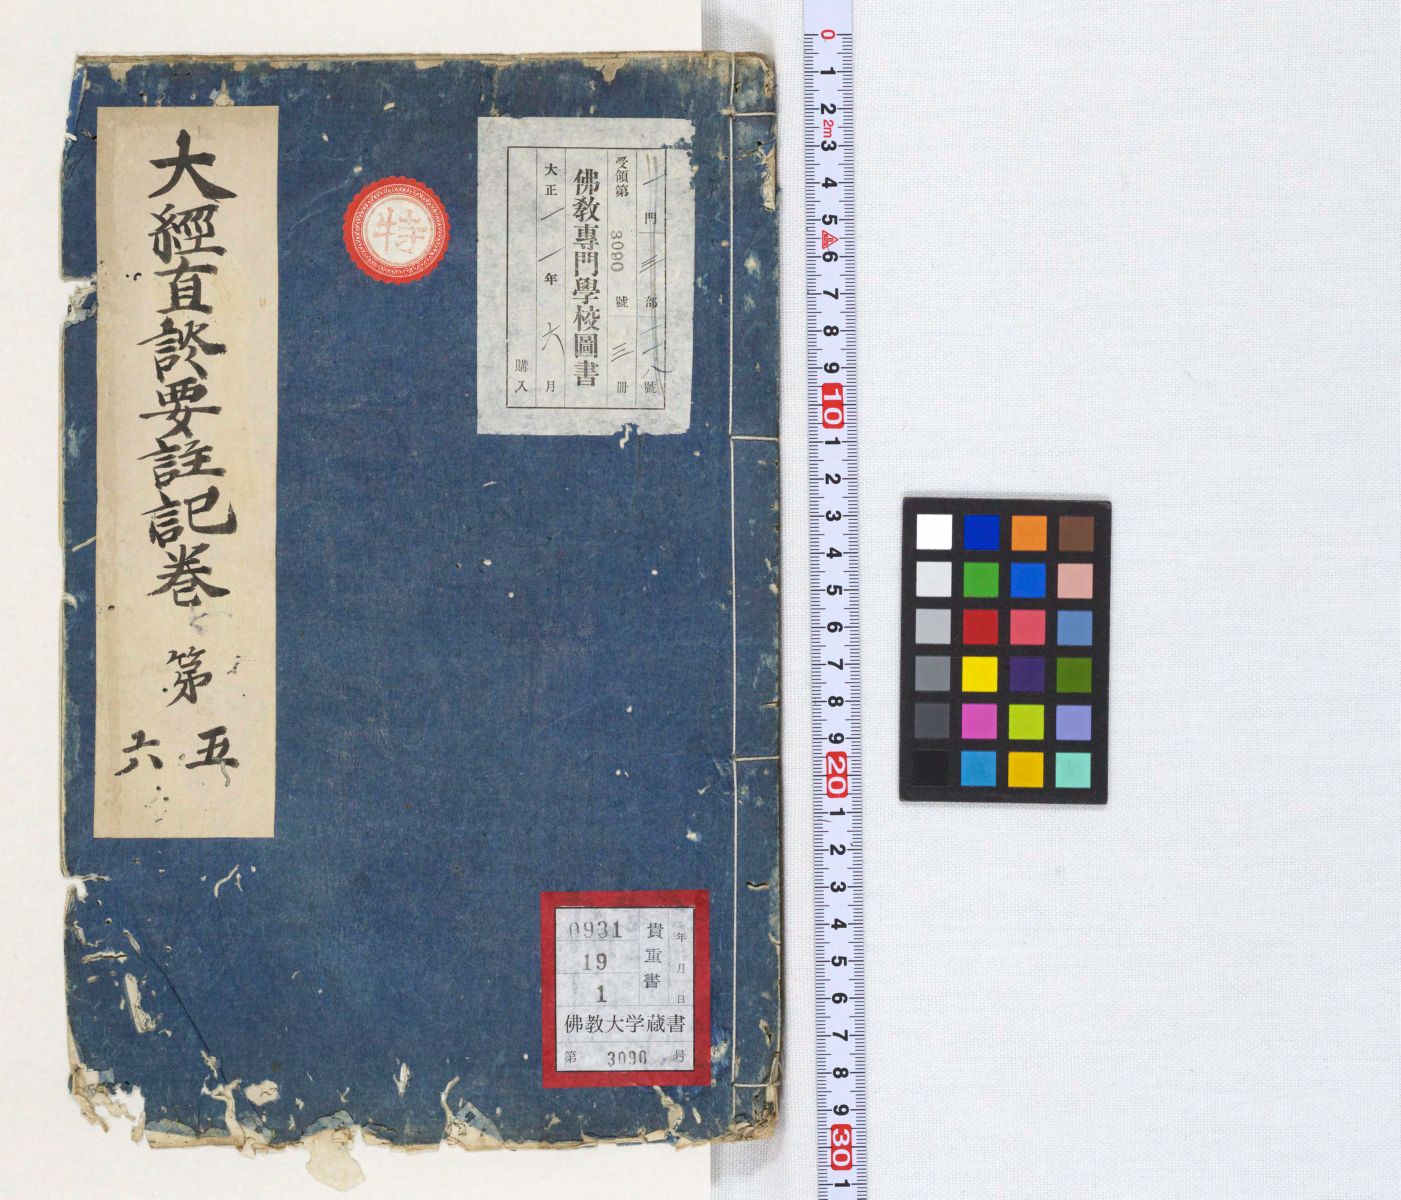 大經直談要註記卷第五
六
特
二門三部二一八號
受領第3090號三冊
佛教專門學校圖書
大正一一年六月
購入
年月日
貴重書
0931
19
1
佛教大学蔵書
第 3090 号
0 1 2 2m 3 4 5 6 7 8 9 10 1 2 3 4 5 6 7 8 9 20 1 2 3 4 5 6 7 8 9 30 1